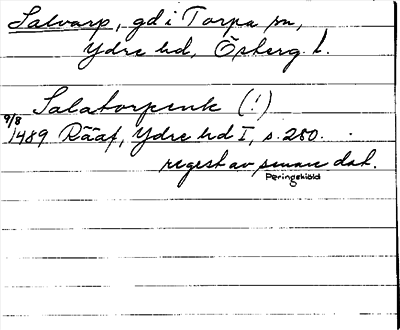 Salvarp, gd i Torpa sn,
Ydre hd, Östergl.
Salatorpenk (!)
9/8
1489 Rääf, Ydre hd I, s. 280.
regest av senare dat.
Peringskiöld